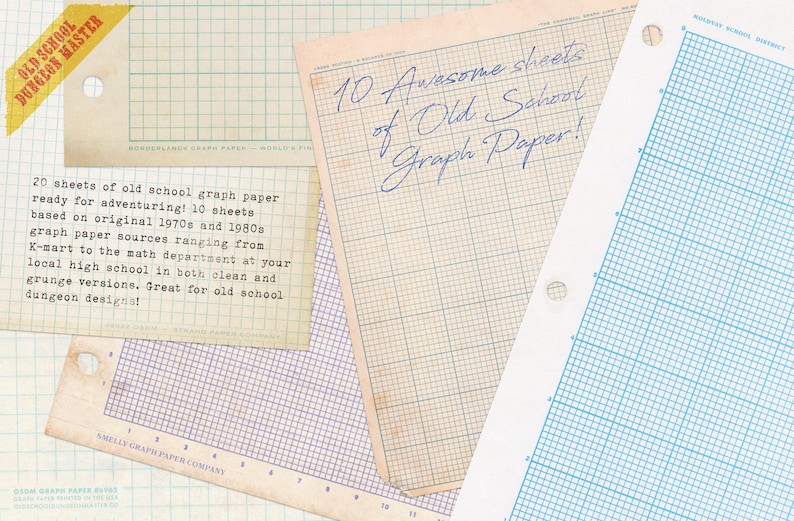 OLD SCHOOL
DUNGEON MASTER
BORDERLANDS GRAPH PAPER — WORLD'S FIN
CROSS SECTION - 8 SQUARES TO INCH
"THE CHAIRMAN GRAPH LINE"
10 Awesome sheets
of Old School
Graph Paper!
MOLDVAY SCHOOL DISTRICT
20 sheets of old school graph paper
ready for adventuring! 10 sheets
based on original 1970s and 1980s
graph paper sources ranging from
K-mart to the math department at your
local high school in both clean and
grunge versions. Great for old school
dungeon designs!
©2022 OSDM — STRAHD PAPER COMPANY
9
8
7
6
5
4
3
2
0
1
1 2 3 4 5 6 7 8 9 10 11
SMELLY GRAPH PAPER COMPANY
OSDM GRAPH PAPER #6983
GRAPH PAPER PRINTED IN THE USA
OLDSCHOOLDUNGEONMASTER.CO